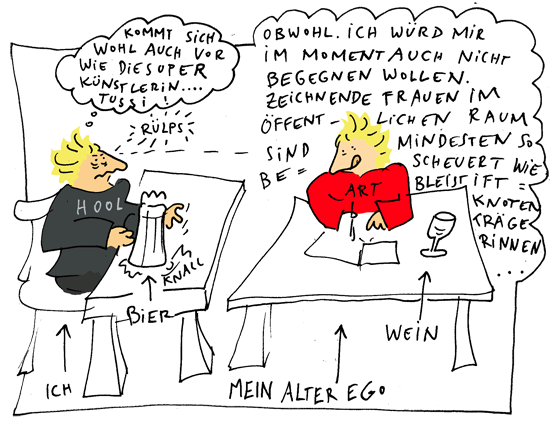 KOMMT SICH
WOHL AUCH VOR
WIE DIE SUPER
KÜNSTLERIN....
TUSSI!
RÜLPS
HOOL
KNALL
BIER
ICH
OBWOHL. ICH WÜRD MIR
IM MOMENT AUCH NICHT
BEGEGNEN WOLLEN.
ZEICHNENDE FRAUEN IM
ÖFFENT- LICHEN RAUM
SIND MINDESTEN SO
BE= SCHEUERT WIE
BLEISTIFT=
KNOTEN
TRÄGE
RINNEN
...
ART
WEIN
MEIN ALTER EGO